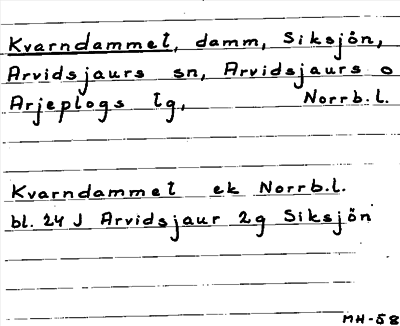 Kvarndammet, damm, Siksjön,
Arvidsjaurs sn, Arvidsjaurs o
Arjeplogs tg, Norrb.l.
Kvarndammet ek Norrb.l.
bl. 24 J Arvidsjaur 2g Siksjön
MH-58